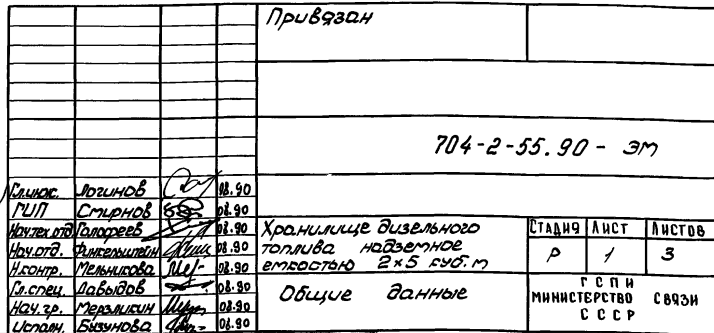 Привязан
704-2-55.90 - ЭМ
Гл.инж. Логинов 08.90
ГИП Смирнов 08.90
Нач.тех.отд Голофеев 08.90
Нач.отд. Финкельштейн 08.90
Н.контр. Мельникова 08.90
Гл.спец. Давыдов 08.90
Нач.гр. Мерзликин 08.90
Исполн. Бызунова 08.90
Хранилище дизельного
топлива надземное
емкостью 2×5 куб.м
СТАДИЯ ЛИСТ ЛИСТОВ
Р 1 3
Общие данные
ГСПИ
МИНИСТЕРСТВО СВЯЗИ
СССР